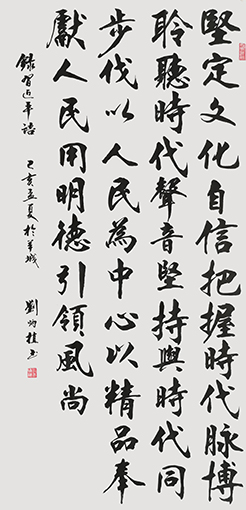 堅定文化自信把握時代脉博
聆聽時代聲音堅持與時代同
步伐以人民為中心以精品奉
獻人民用明德引領風尚
錄習近平語
己亥孟夏於羊城
劉炳桂書